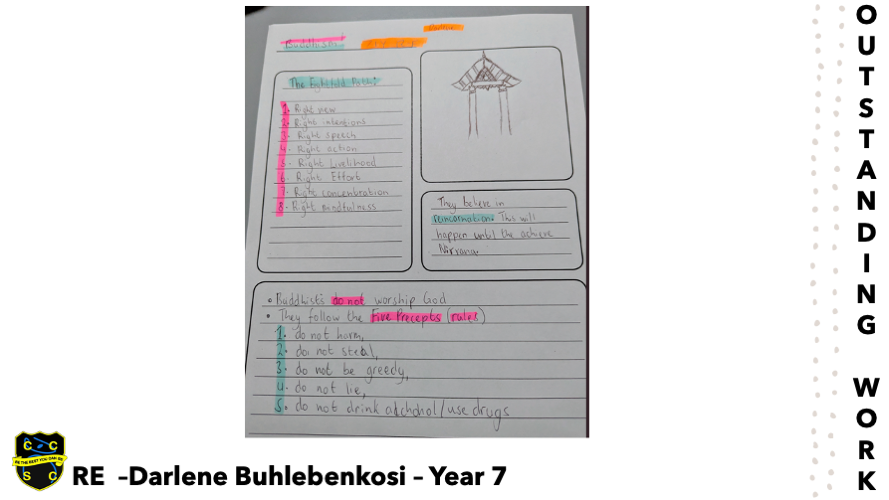 Buddhism
The Eightfold Path:
1. Right view
2. Right intentions
3. Right speech
4. Right action
5. Right Livelihood
6. Right Effort
7. Right concentration
8. Right mindfulness
They believe in
reincarnation. This will
happen until the achieve
Nirvana.
• Buddhists do not worship God
• They follow the Five Precepts (rules)
1. do not harm,
2. do not steal,
3. do not be greedy,
4. do not lie,
5. do not drink alchohol/use drugs
C C
BE THE BEST YOU CAN BE
S C
RE –Darlene Buhlebenkosi – Year 7
OUTSTANDING WORK